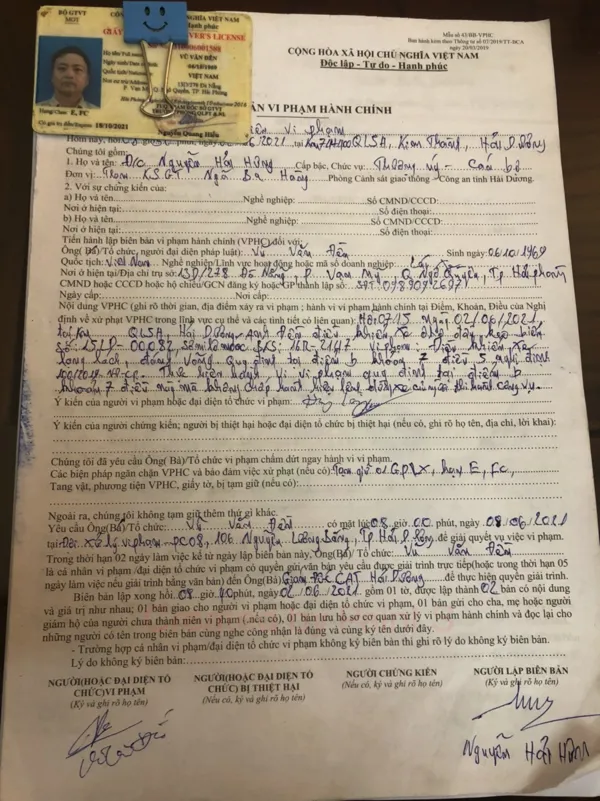 BỘ GTVT
MOT
Mẫu số 43/BB-VPHC
Ban hành kèm theo Thông tư số 07/2019/TT-BCA
ngày 20/03/2019
CỘNG HÒA XÃ HỘI CHỦ NGHĨA VIỆT NAM
Độc lập - Tự do - Hạnh phúc
VER'S LICENSE
VŨ VĂN ĐỀN
VIỆT NAM
Hạng/Class E, FC
18/10/2021
Nguyễn Quang Hiếu
VI PHẠM HÀNH CHÍNH
vi phạm
QL5A, Kim Thành, Hải Dương
Chúng tôi gồm:
1. Họ và tên: Đ/c Nguyễn Hải Hưng Cấp bậc, Chức vụ: Thượng úy - Cán bộ
Đơn vị: Trạm KSGT Ngã Ba Hàng Phòng Cảnh sát giao thông - Công an tỉnh Hải Dương.
2. Với sự chứng kiến của:
a) Họ và Tên: Nghề nghiệp: Số CMND/CCCD:
Nơi ở hiện tại: Số điện thoại:
b) Họ và tên: Nghề nghiệp: Số CMND/CCCD:
Nơi ở hiện tại: Số điện thoại:
Tiến hành lập biên bản vi phạm hành chính (VPHC) đối với:
Ông(Bà)/Tổ chức, người đại diện pháp luật): Vũ Văn Đền Sinh ngày: 06/10/1969
Quốc tịch: Việt Nam Nghề nghiệp/Lĩnh vực hoạt động hoặc mã số doanh nghiệp:
Nơi ở hiện tại/Địa chỉ trụ sở: 13D/278 Đà Nẵng, P. Vạn Mỹ, Q. Ngô Quyền, Tp Hải Phòng
CMND hoặc CCCD hoặc hộ chiếu/GCN đăng ký hoặc GP thành lập số:
Ngày cấp: Nơi cấp:
Nội dung VPHC (ghi rõ thời gian, địa điểm xảy ra vi phạm ; hành vi vi phạm hành chính tại Điểm, Khoản, Điều của Nghị
định về xử phạt VPHC trong lĩnh vực cụ thể và các tình tiết có liên quan): Hồi 07h15 ngày 02/06/2021
tại Km QL5A, Hải Dương. Anh Đền điều khiển xe đầu kéo biển
số: 15LD-00082 sơmi rơmoóc BKS: 16R-2147 vi phạm: Điều khiển xe
lạng lách, đánh võng quy định tại điểm b khoản 7 điều 5 nghị định
100/2019-NĐ-CP. Thực hiện hành vi vi phạm quy định tại điểm b
khoản 7 điều này mà không chấp hành hiệu lệnh dừng xe của người thi hành công vụ.
Ý kiến của người vi phạm hoặc đại diện tổ chức vi phạm:
Ý kiến của người chứng kiến; người bị thiệt hại hoặc đại diện tổ chức bị thiệt hại (nếu có, ghi rõ họ tên, địa chỉ, lời khai):
Chúng tôi đã yêu cầu Ông( Bà)/Tổ chức vi phạm chấm dứt ngay hành vi vi phạm.
Các biện pháp ngăn chặn VPHC và bảo đảm việc xử phạt (nếu có): Tạm giữ 01 GPLX, hạng E, FC,
Tang vật, phương tiện VPHC, giấy tờ, bị tạm giữ (nếu có):
Ngoài ra, chúng tôi không tạm giữ thêm thứ gì khác.
Yêu cầu Ông(Bà)/Tổ chức: Vũ Văn Đền có mặt lúc 08 giờ 00 phút, ngày 08/06/2021
tại Đội xử lý vi phạm - PC08, 106 Nguyễn Lương Bằng, Tp. Hải Dương để giải quyết vụ việc vi phạm.
Trong thời hạn 02 ngày làm việc kể từ ngày lập biên bản này, Ông(Bà)/ Tổ chức: Vũ Văn Đền
là cá nhân vi phạm/đại diện tổ chức vi phạm có quyền gửi văn bản yêu cầu được giải trình trực tiếp(hoặc trong thời hạn 05
ngày làm việc nếu giải trình bằng văn bản) đến Ông(Bà) Giám đốc CAT Hải Dương để thực hiện quyền giải trình.
Biên bản lập xong hồi 08 giờ phút, ngày 02/06/2021 gồm 01 tờ, được lập thành 02 bản có nội dung
và giá trị như nhau; 01 bản giao cho người vi phạm hoặc đại diện tổ chức vi phạm, 01 bản gửi cho cha, mẹ hoặc người
giám hộ của người chưa thành niên vi phạm (nếu có), 01 bản lưu hồ sơ cơ quan xử lý vi phạm hành chính và đọc lại cho
những người có tên trong biên bản cùng nghe công nhận là đúng và cùng ký tên dưới đây.
- Trường hợp cá nhân vi phạm/đại diện tổ chức vi phạm không ký biên bản thì ghi rõ lý do không ký biên bản.
Lý do không ký biên bản:
NGƯỜI(HOẶC ĐẠI DIỆN TỔ CHỨC)VI PHẠM
(Ký và ghi rõ họ tên)
NGƯỜI(HOẶC ĐẠI DIỆN TỔ CHỨC) BỊ THIỆT HẠI
(Nếu có, ký và ghi rõ họ tên)
NGƯỜI CHỨNG KIẾN
(Nếu có, ký và ghi rõ họ tên)
NGƯỜI LẬP BIÊN BẢN
(Ký và ghi rõ họ tên)
Nguyễn Hải Hưng